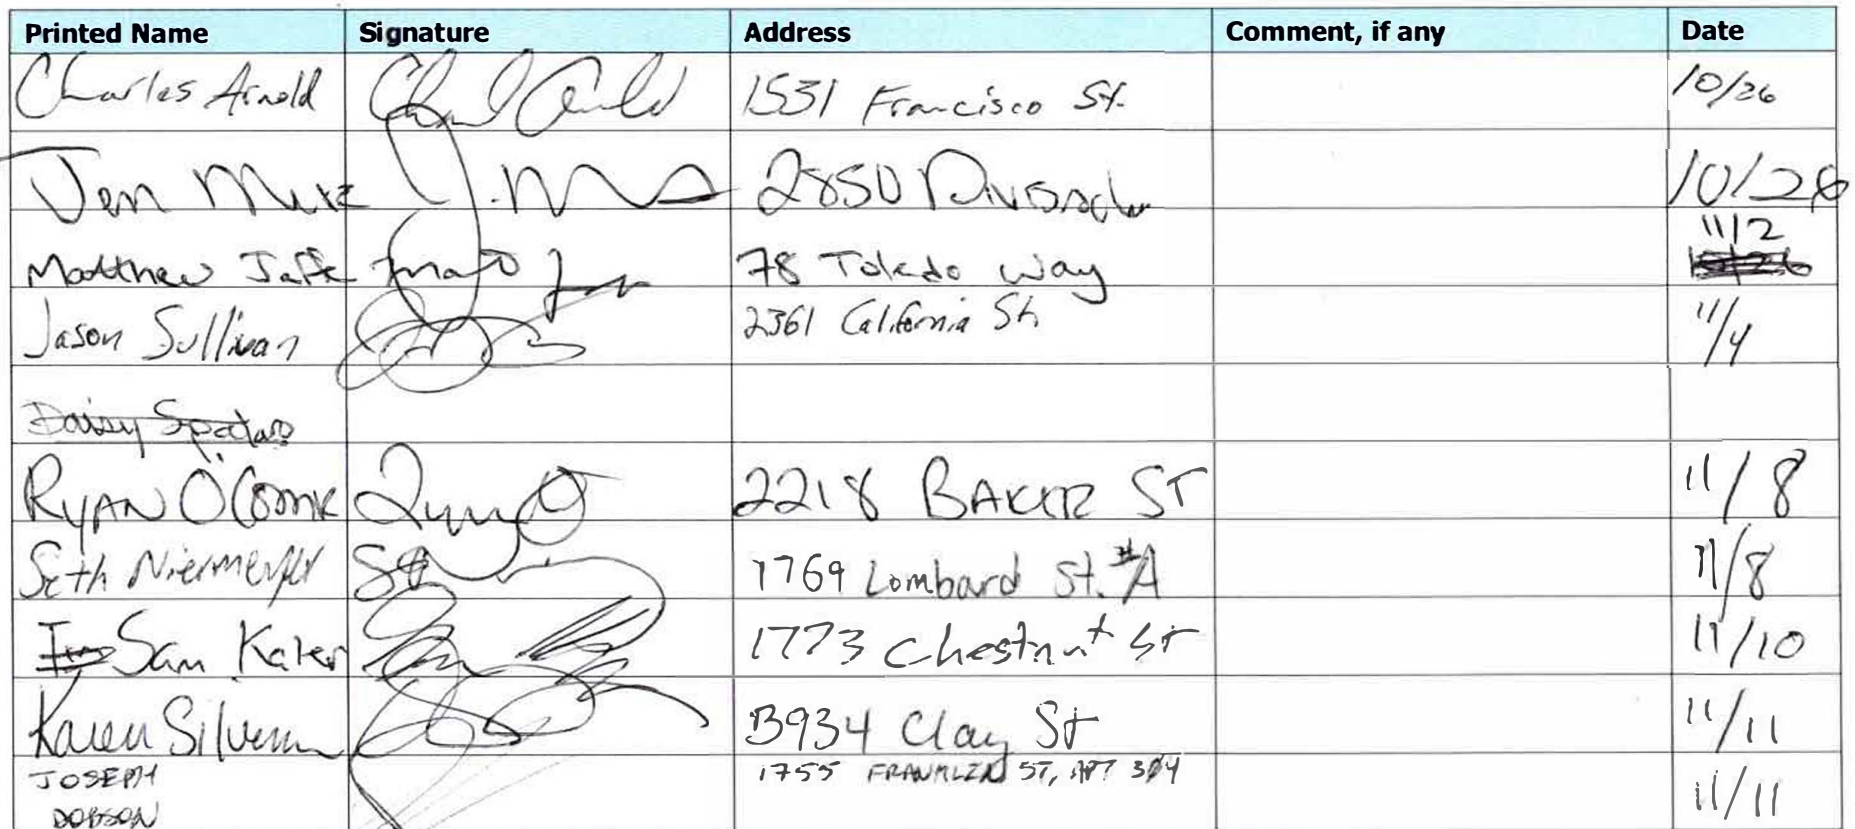 Printed Name Signature Address Comment, if any Date
Charles Arnold 1531 Francisco St. 10/26
Jen 2850 Divisadero 10/26
Matthew Jaffe 78 Toledo Way 11/2
Jason Sullivan 2361 California St. 11/4
Daisy Spataro
RYAN 2218 BAKER ST 11/8
Seth Niermeyer 1769 Lombard St. #A 11/8
Sam Kater 1773 Chestnut St 11/10
Karen 3934 Clay St 11/11
JOSEPH 1755 FRANKLIN ST, APT 304
DOBSON 11/11